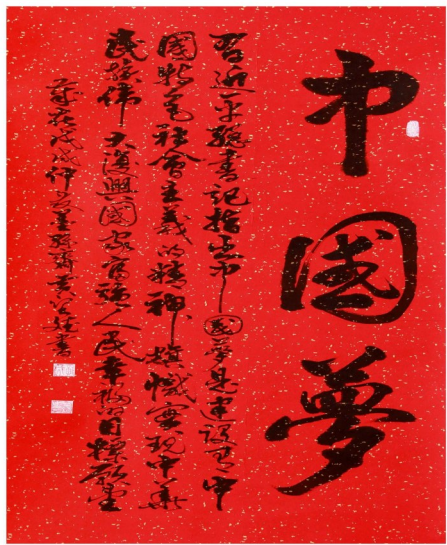 中國夢
習近平總書記指出中國夢是建設有中
國特色社會主義的精神旗幟實現中華
民族偉大復興國家富強人民幸福的目標願望
歲在戊戌仲夏墨緣齋書